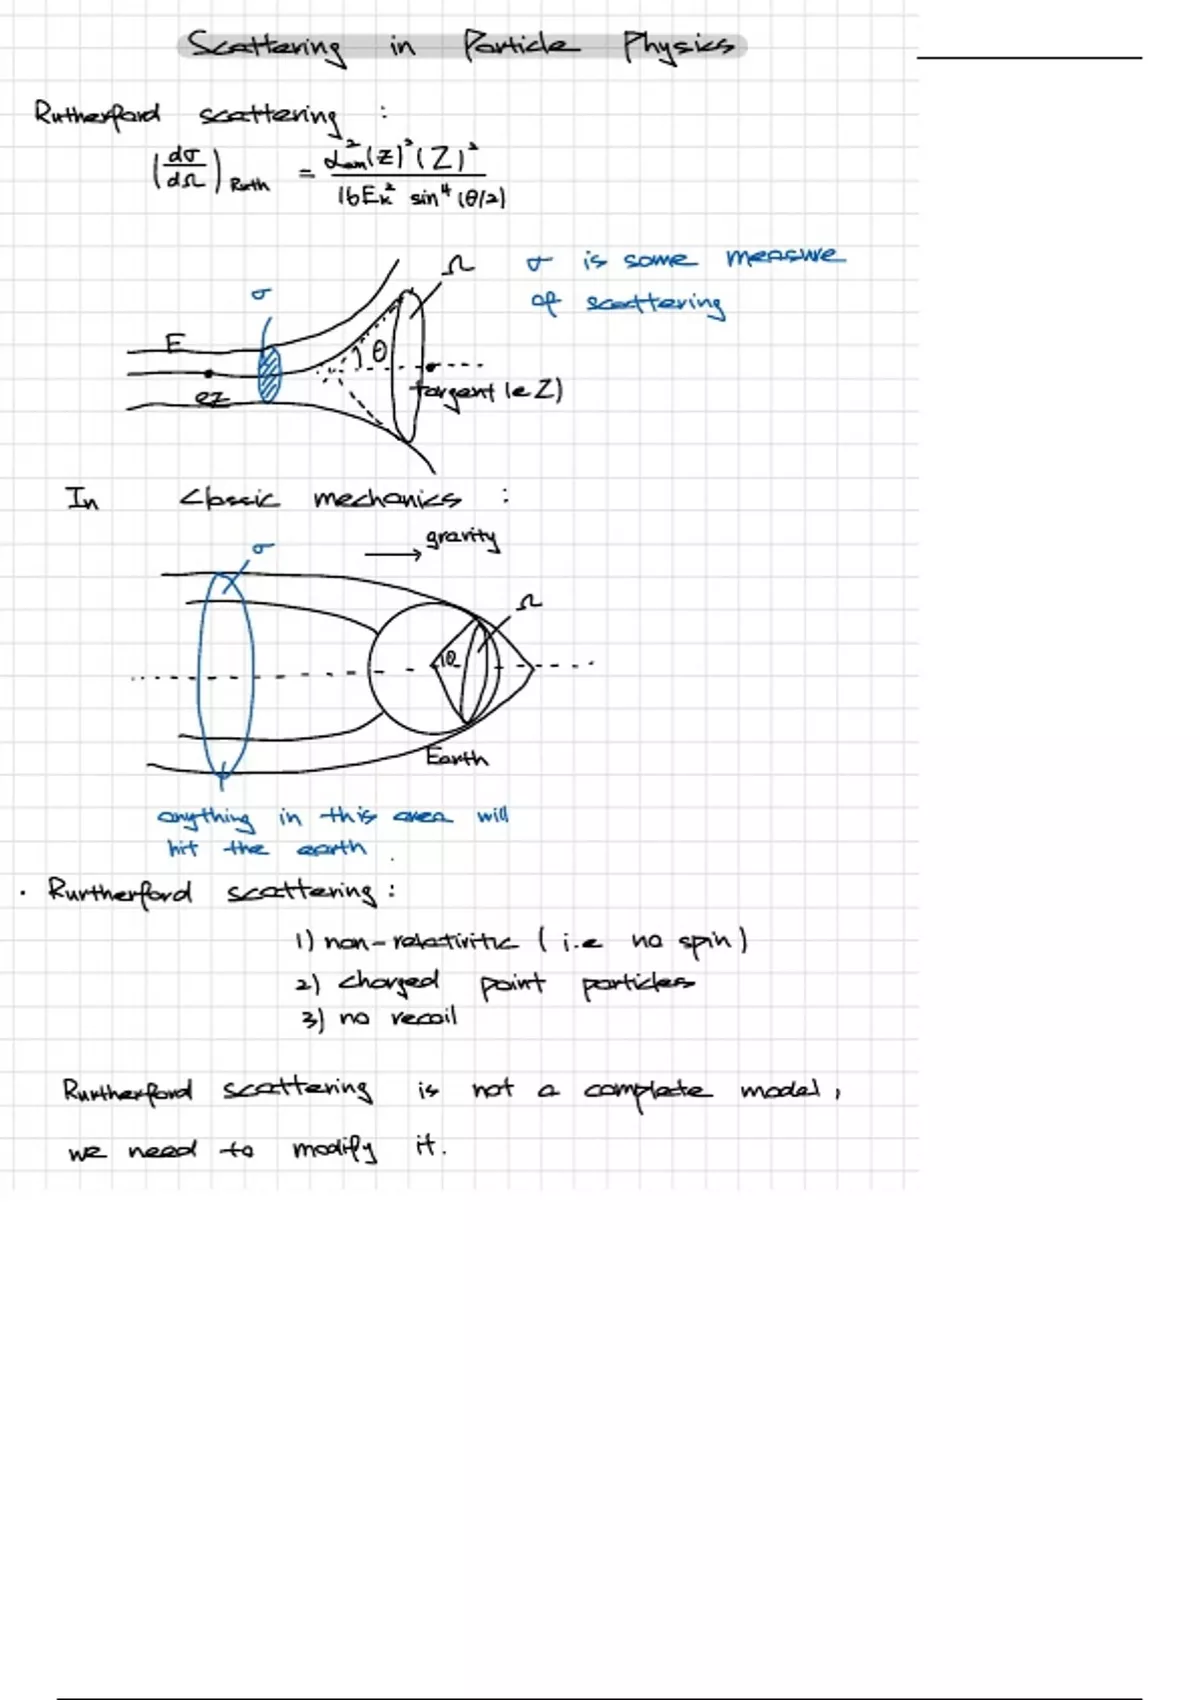 Scattering in Particle Physics
Rutherford scattering :
(dσ/dΩ) Ruth = α²em (z)² (Z)² / 16Ek² sin⁴ (θ/2)
σ is some measure
of scattering
σ
Ω
E
θ
ez
targent (eZ)
In classic mechanics :
→ gravity
σ
Ω
θ
Earth
anything in this area will
hit the earth
· Rurtherford scattering :
1) non-relativitic ( i.e no spin )
2) charged point particles
3) no recoil
Rurtherford scattering is not a complete model,
we need to modify it.